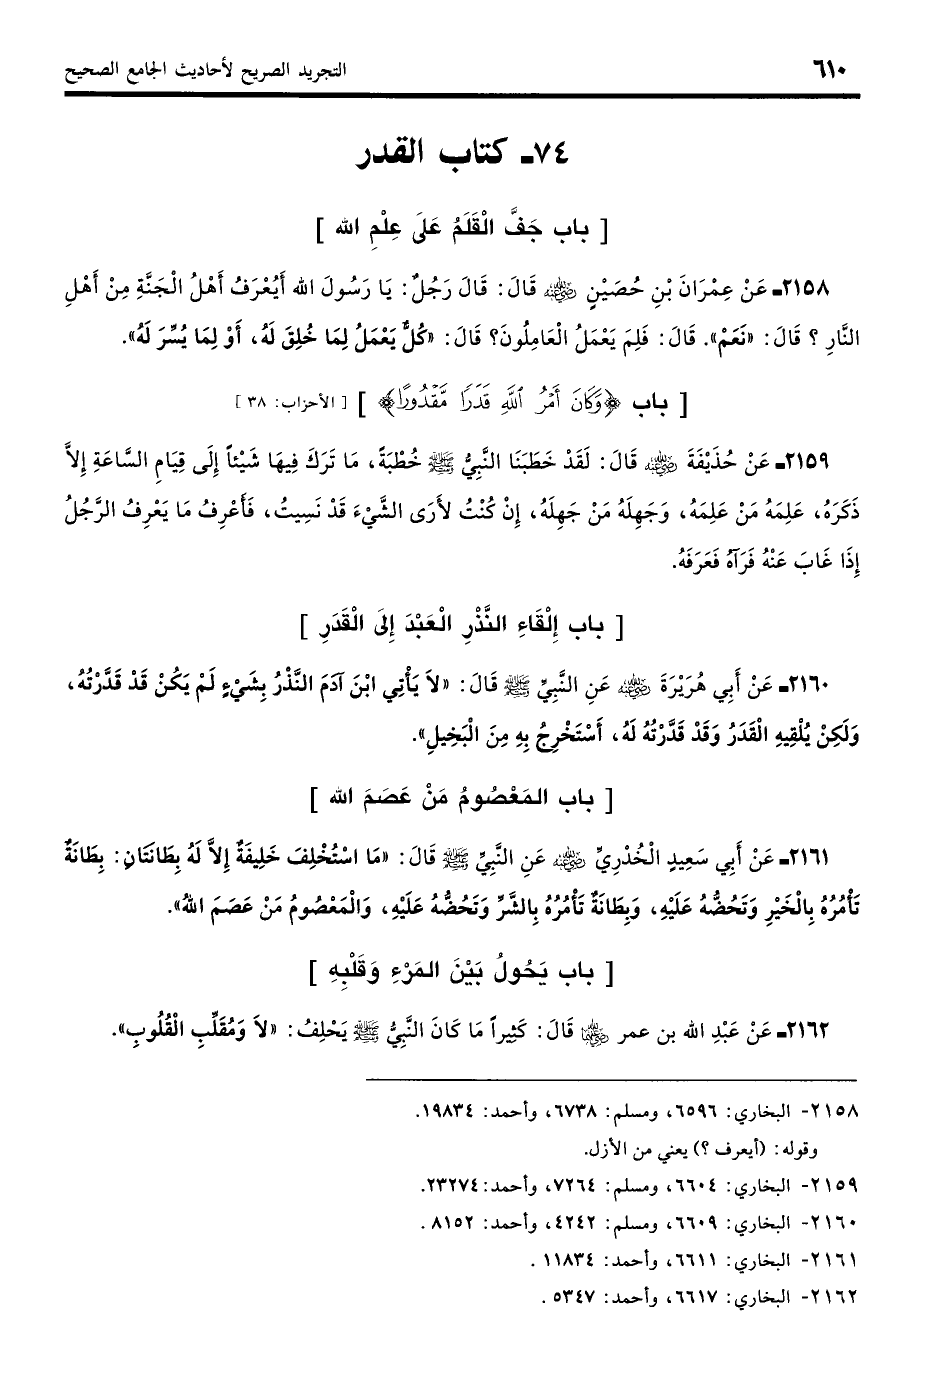 ٦١٠ التجريد الصريح لأحاديث الجامع الصحيح
٧٤ـ كتاب القدر
[ باب جَفَّ الْقَلَمُ عَلَى عِلْمِ الله ]
٢١٥٨ـ عَنْ عِمْرَانَ بْنِ حُصَيْنٍ رضي الله عنه قَالَ: قَالَ رَجُلٌ: يَا رَسُولَ الله أَيُعْرَفُ أَهْلُ الْجَنَّةِ مِنْ أَهْلِ
النَّارِ ؟ قَالَ: «نَعَمْ». قَالَ: فَلِمَ يَعْمَلُ الْعَامِلُونَ؟ قَالَ: «كُلٌّ يَعْمَلُ لِمَا خُلِقَ لَهُ، أَوْ لِمَا يُسِّرَ لَهُ».
[ باب ﴿وَكَانَ أَمْرُ ٱللَّهِ قَدَرًا مَّقْدُورًا﴾ ] [الأحزاب: ٣٨ ]
٢١٥٩ـ عَنْ حُذَيْفَةَ رضي الله عنه قَالَ: لَقَدْ خَطَبَنَا النَّبِيُّ ﷺ خُطْبَةً، مَا تَرَكَ فِيهَا شَيْئاً إِلَى قِيَامِ السَّاعَةِ إِلاَّ
ذَكَرَهُ، عَلِمَهُ مَنْ عَلِمَهُ، وَجَهِلَهُ مَنْ جَهِلَهُ، إِنْ كُنْتُ لأَرَى الشَّيْءَ قَدْ نَسِيتُ، فَأَعْرِفُ مَا يَعْرِفُ الرَّجُلُ
إِذَا غَابَ عَنْهُ فَرَآهُ فَعَرَفَهُ.
[ باب إِلْقَاءِ النَّذْرِ الْعَبْدَ إِلَى الْقَدَرِ ]
٢١٦٠ـ عَنْ أَبِي هُرَيْرَةَ رضي الله عنه عَنِ النَّبِيِّ ﷺ قَالَ: «لاَ يَأْتِي ابْنَ آدَمَ النَّذْرُ بِشَيْءٍ لَمْ يَكُنْ قَدْ قَدَّرْتُهُ،
وَلَكِنْ يُلْقِيهِ الْقَدَرُ وَقَدْ قَدَّرْتُهُ لَهُ، أَسْتَخْرِجُ بِهِ مِنَ الْبَخِيلِ».
[ باب المَعْصُومُ مَنْ عَصَمَ الله ]
٢١٦١ـ عَنْ أَبِي سَعِيدٍ الْخُدْرِيِّ رضي الله عنه عَنِ النَّبِيِّ ﷺ قَالَ: «مَا اسْتُخْلِفَ خَلِيفَةٌ إِلاَّ لَهُ بِطَانَتَانِ: بِطَانَةٌ
تَأْمُرُهُ بِالْخَيْرِ وَتَحُضُّهُ عَلَيْهِ، وَبِطَانَةٌ تَأْمُرُهُ بِالشَّرِّ وَتَحُضُّهُ عَلَيْهِ، وَالْمَعْصُومُ مَنْ عَصَمَ اللهُ».
[ باب يَحُولُ بَيْنَ المَرْءِ وَقَلْبِهِ ]
٢١٦٢ـ عَنْ عَبْدِ الله بن عمر رضي الله عنه قَالَ: كَثِيراً مَا كَانَ النَّبِيُّ ﷺ يَحْلِفُ: «لاَ وَمُقَلِّبِ الْقُلُوبِ».
٢١٥٨- البخاري: ٦٥٩٦، ومسلم: ٦٧٣٨، وأحمد: ١٩٨٣٤.
وقوله: (أيعرف ؟) يعني من الأزل.
٢١٥٩- البخاري: ٦٦٠٤، ومسلم: ٧٢٦٤، وأحمد: ٢٣٢٧٤.
٢١٦٠- البخاري: ٦٦٠٩، ومسلم: ٤٢٤٢، وأحمد: ٨١٥٢ .
٢١٦١- البخاري: ٦٦١١، وأحمد: ١١٨٣٤ .
٢١٦٢- البخاري: ٦٦١٧، وأحمد: ٥٣٤٧ .